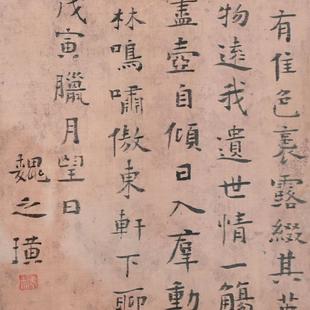 有佳色裛露綴其英
物遠我遺世情一觴
盡壺自傾日入羣動
林鳴嘯傲東軒下聊
戊寅臘月望日
魏之璜